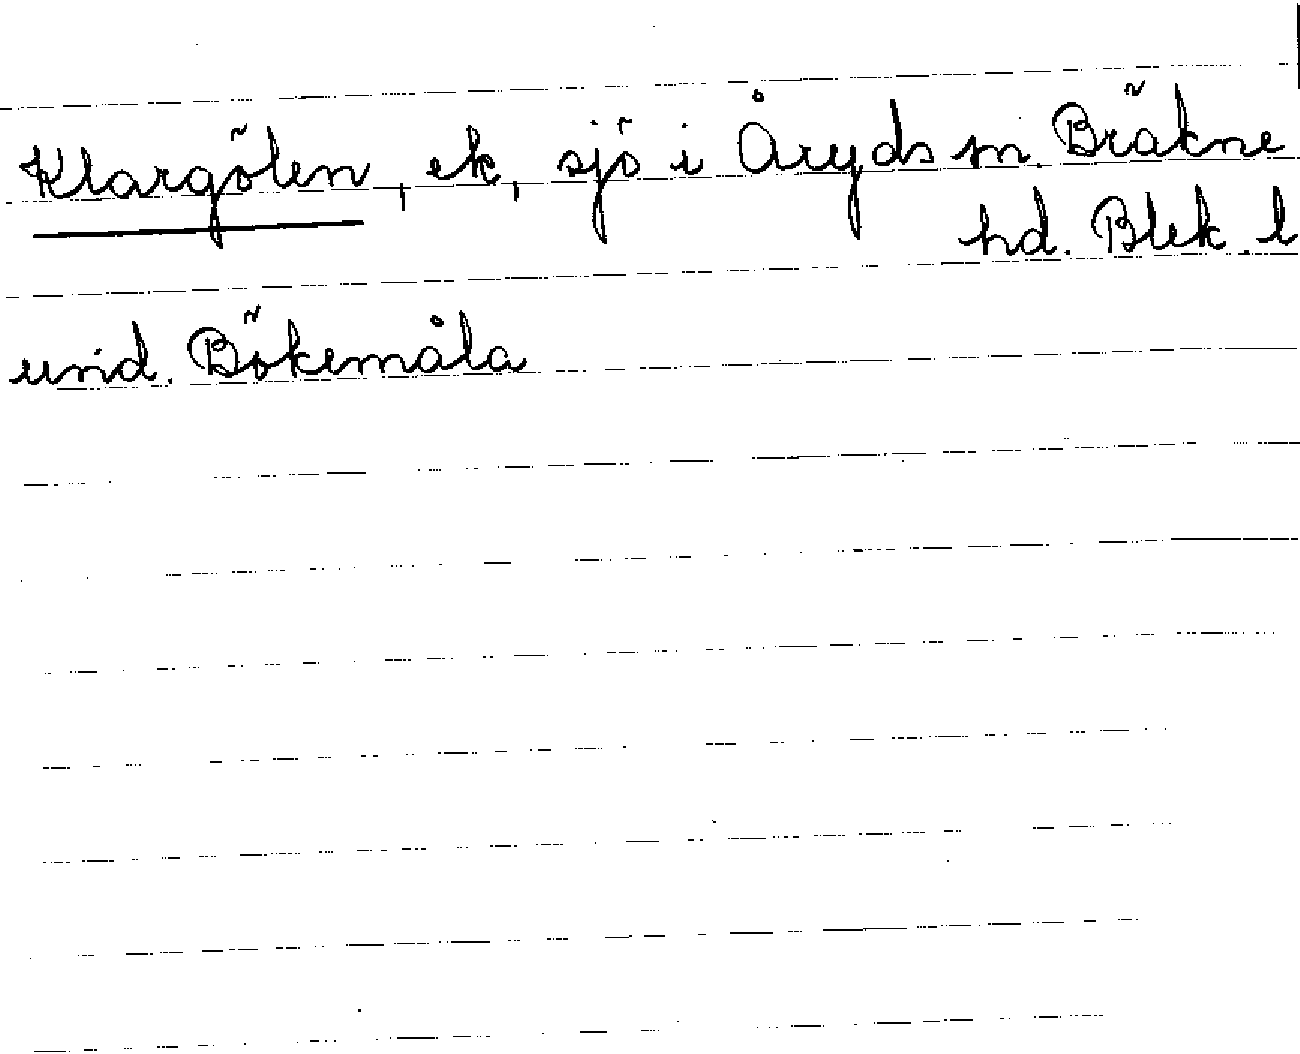 Klargölen, ek, sjö i Åryds sn. Bräkne
hd. Blek. l
und. Bökemåla